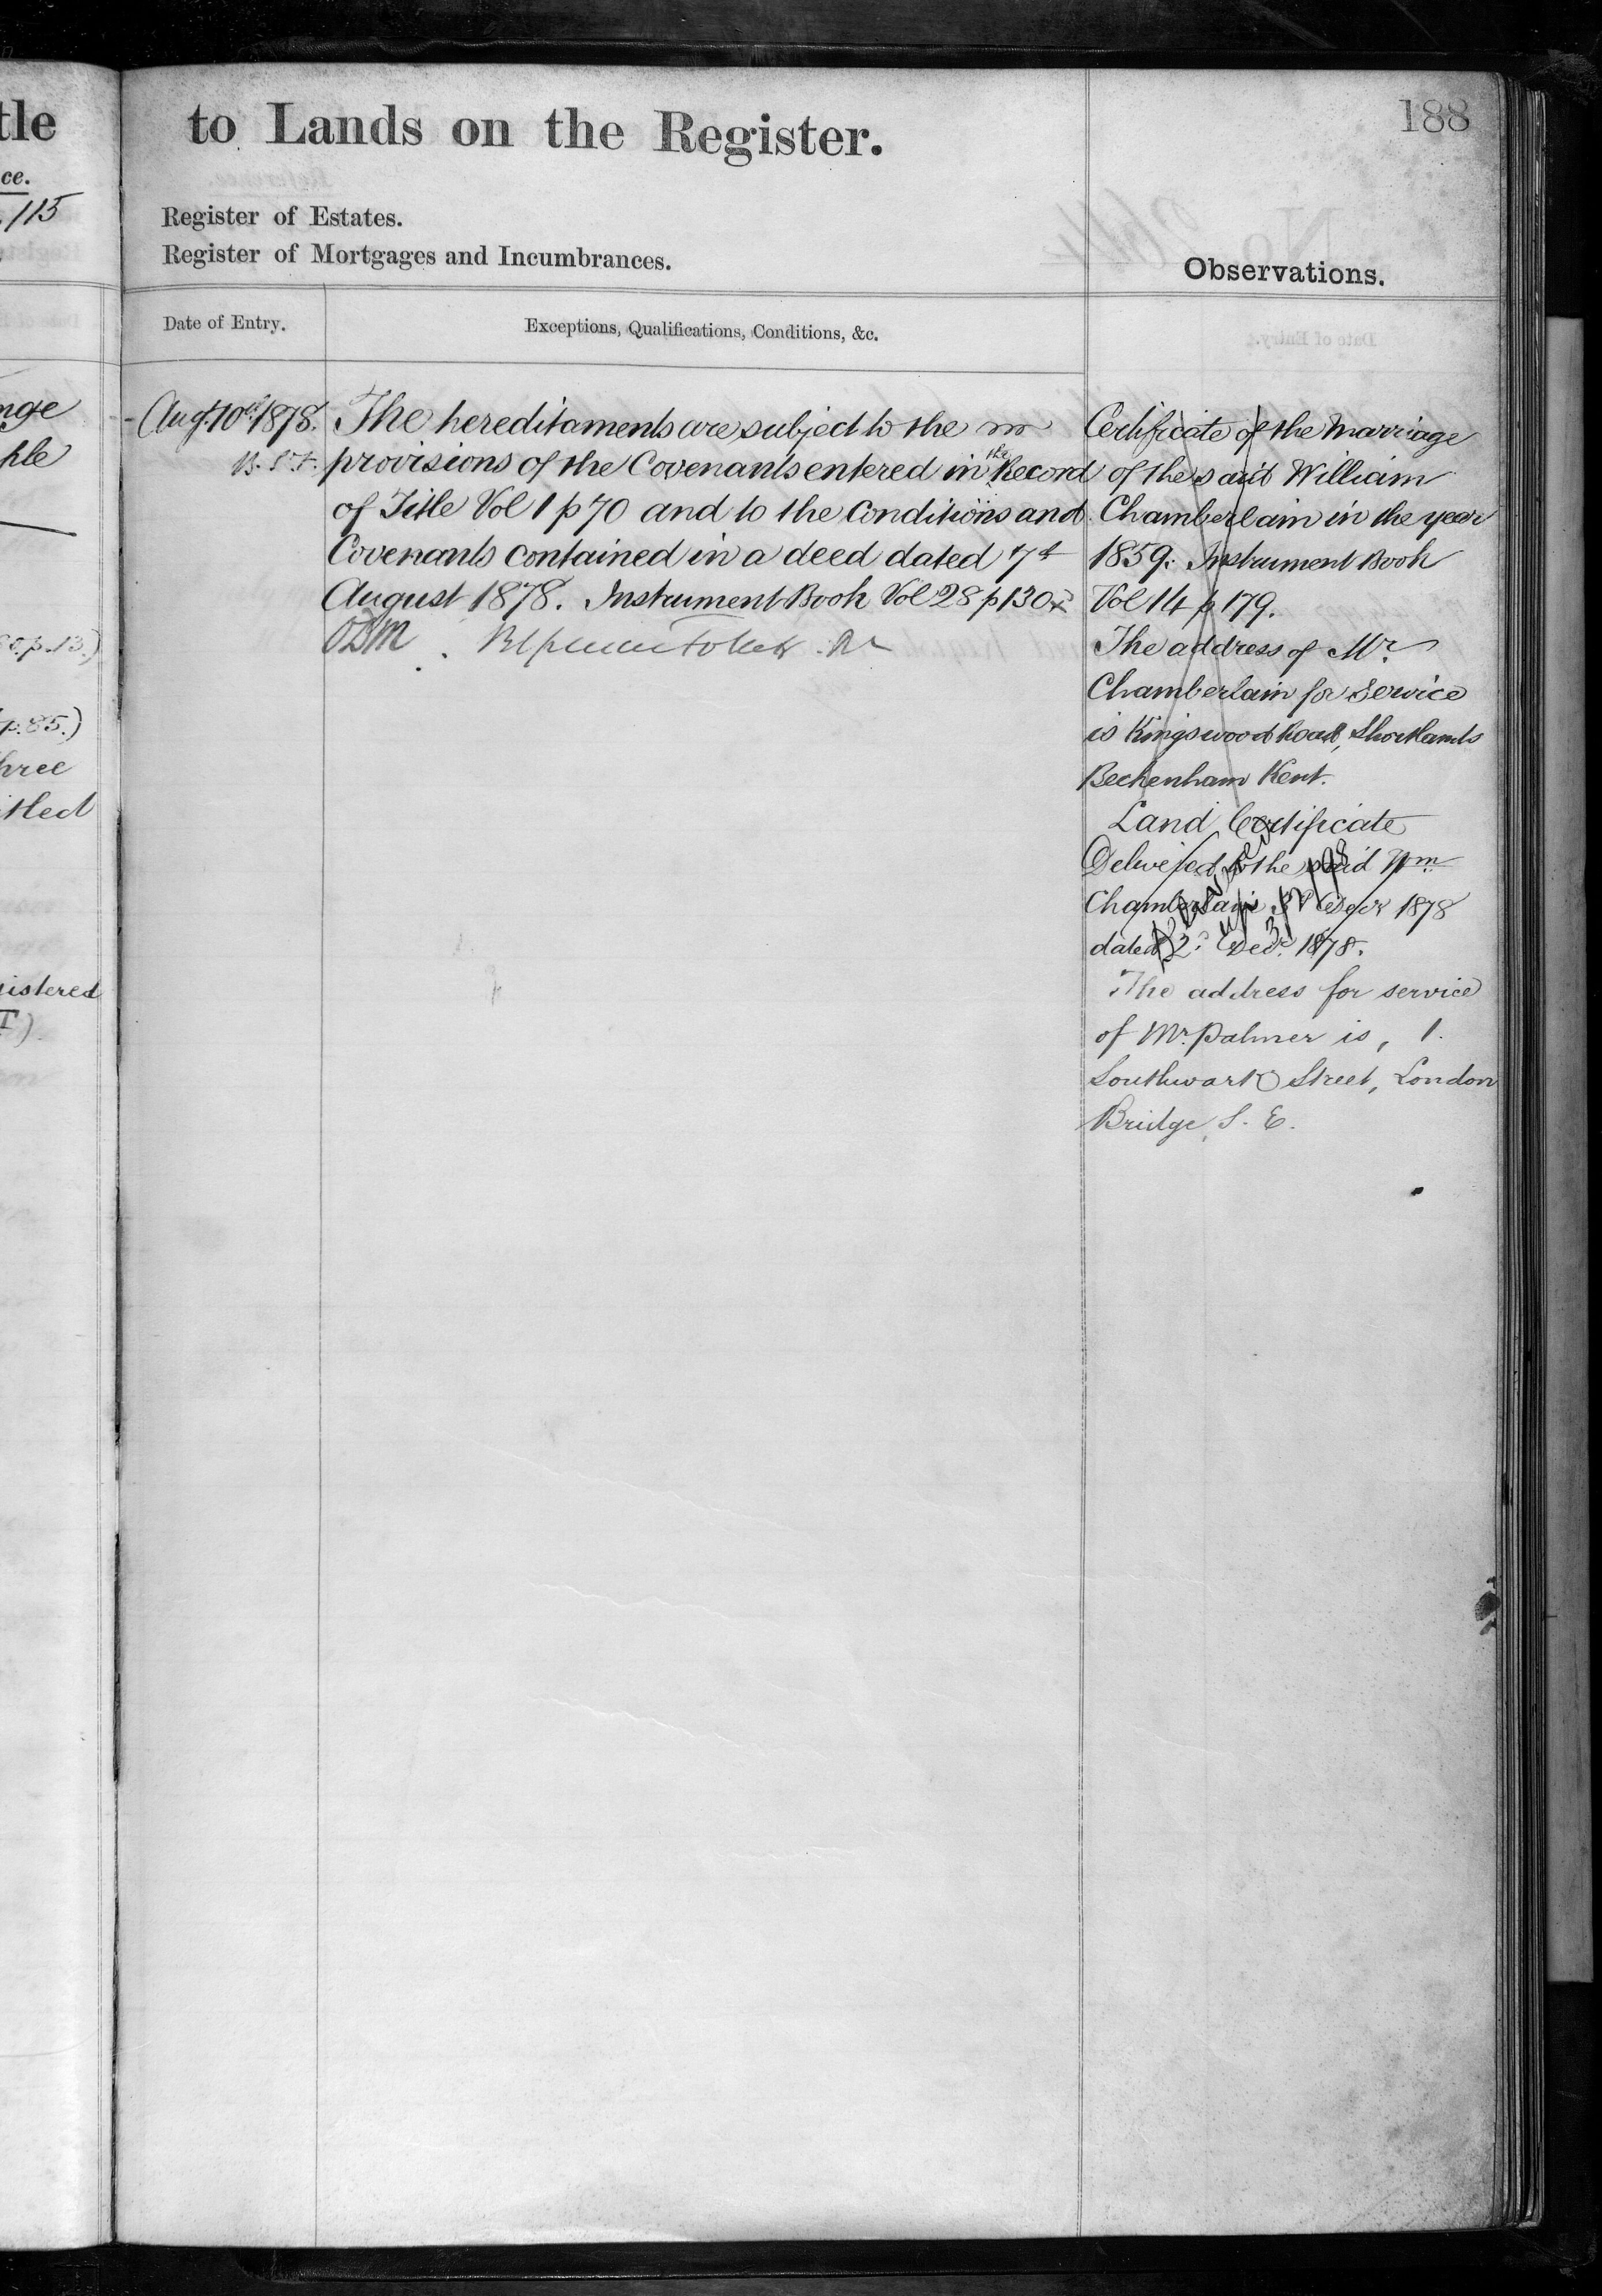 tle
ce.
115
nge
ple
p.13.)
p.85.)
hree
itled
istered
T)
to Lands on the Register.
188
Register of Estates.
Register of Mortgages and Incumbrances.
Observations.
Date of Entry.
Exceptions, Qualifications, Conditions, &c.
Aug. 10th 1878.
The hereditaments are subject to the
provisions of the Covenants entered in the Record
of Title Vol 1 p 70 and to the Conditions and
Covenants contained in a deed dated 7th
August 1878. Instrument Book Vol 28 p 130
Certificate of the Marriage
of the said William
Chamberlain in the year
1859. Instrument Book
Vol 14 p 179.
The address of Mr
Chamberlain for Service
is Kingswood Road, Shortlands
Beckenham Kent.
Land Certificate
Delivered to the said Wm
Chamberlain 3d Decr 1878
dated 2d Decr 1878.
The address for service
of Mr. Palmer is, 1.
Southwark Street, London
Bridge, S. E.